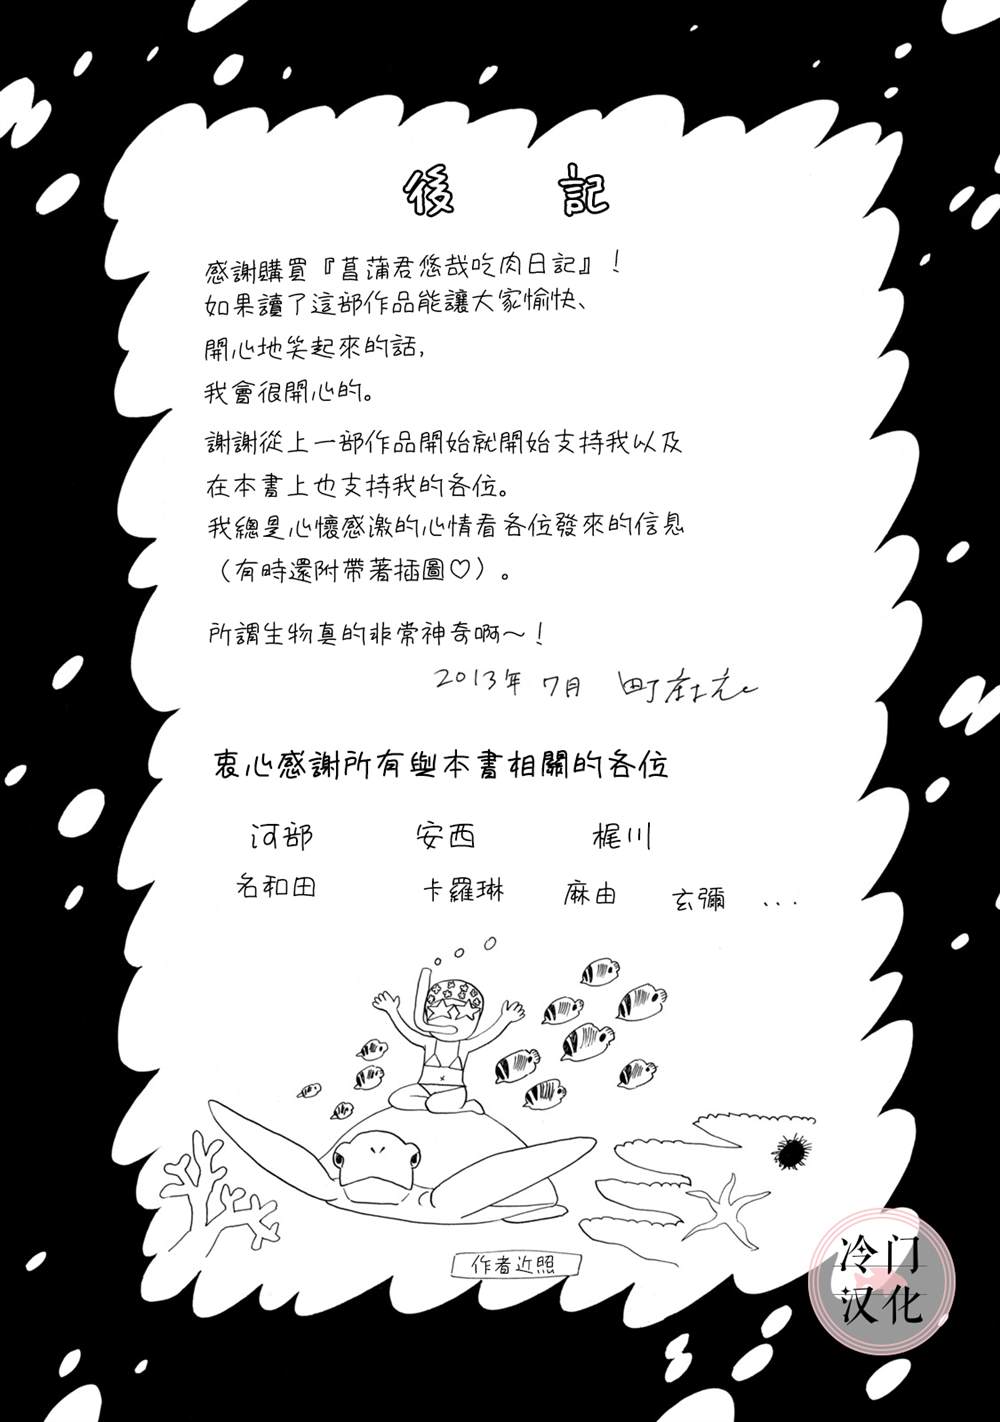 後記
感謝購買『菖蒲君悠哉吃肉日記』！
如果讀了這部作品能讓大家愉快、
開心地笑起來的話，
我會很開心的。
謝謝從上一部作品開始就開始支持我以及
在本書上也支持我的各位。
我總是心懷感激的心情看各位發來的信息
（有時還附帶著插圖♡）。
所謂生物真的非常神奇啊～！
2013年 7月 町
衷心感謝所有與本書相關的各位
河部 安西 梶川
名和田 卡羅琳 麻由 玄彌 ...
作者近照
冷门
汉化